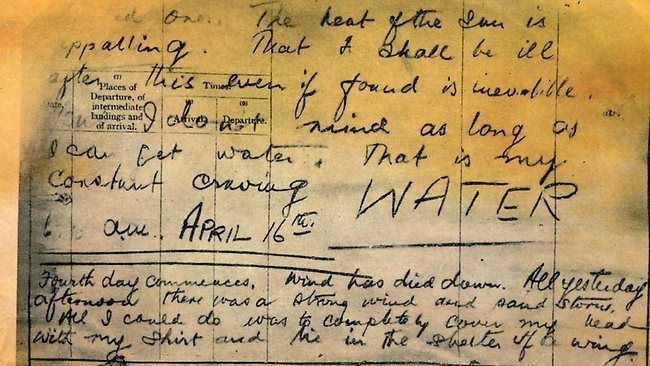 ed one. The heat of the Sun is
appalling. That I shall be ill
after this even if found is inevitable.
(7)
Places of
Departure, of
intermediate
landings and
of arrival.
Date.
Time
Arrival.
(9)
Departure.
I do not mind as long as
I can get water. That is my
constant craving WATER
am. APRIL 16th.
Fourth day commences. Wind has died down. All yesterday
afternoon there was a strong wind and sand storm.
All I could do was to completely cover my head
with my shirt and lie in the shelter of a wing.